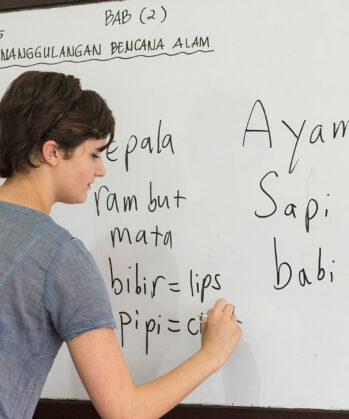 BAB (2)
NANGGULANGAN BENCANA ALAM
epala
rambut
mata
bibir = lips
pipi =
Ayam
Sapi
babi